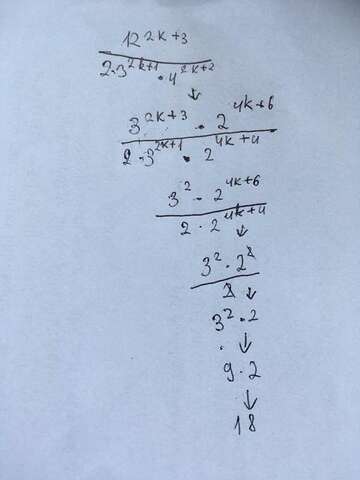 12^{2k+3}
2·3^{2k+1}·4^{2k+2}
↓
3^{2k+3}·2^{4k+6}
2·3^{2k+1}·2^{4k+4}
3^2·2^{4k+6}
2·2^{4k+4}
↓
3^2·2^2
2
↓
3^2·2
↓
9·2
↓
18